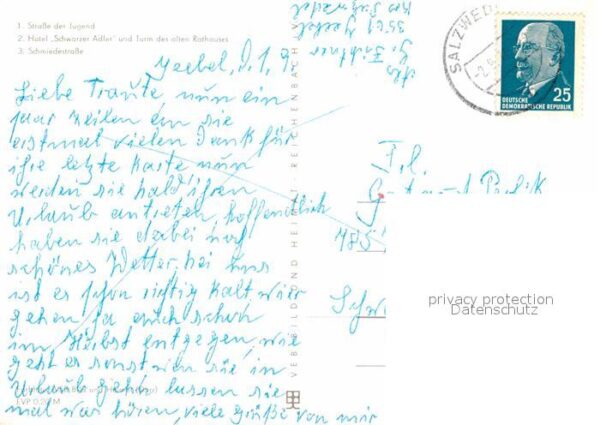 1. Straße der Jugend
2. Hotel „Schwarzer Adler" und Turm des alten Rathauses
3. Schmiedestraße
Jeebel, d. 1. 9.
Liebe Traute nun ein
paar Zeilen ein sie
erstmal vielen Dank für
ihre letzte Karte nun
werden sie bald ihren
Urlaub antreten, hoffendlich
haben sie dabei noch
schönes Wetter, bei uns
ist es schon richtig kalt, wir
gehen ja auch schon
im Herbst entgegen, wie
geht es sonst wen sie in
Urlaub gehn lassen sie
mal was hören, viele Grüße von mir
EVP 0,20 M
VEB BILD UND HEIMAT REICHENBACH
Abs
3561 Jeebel
Krs Salzwedel
SALZWED
DEUTSCHE
DEMOKRATISCHE REPUBLIK
25
Frl.
Schw
privacy protection
Datenschutz